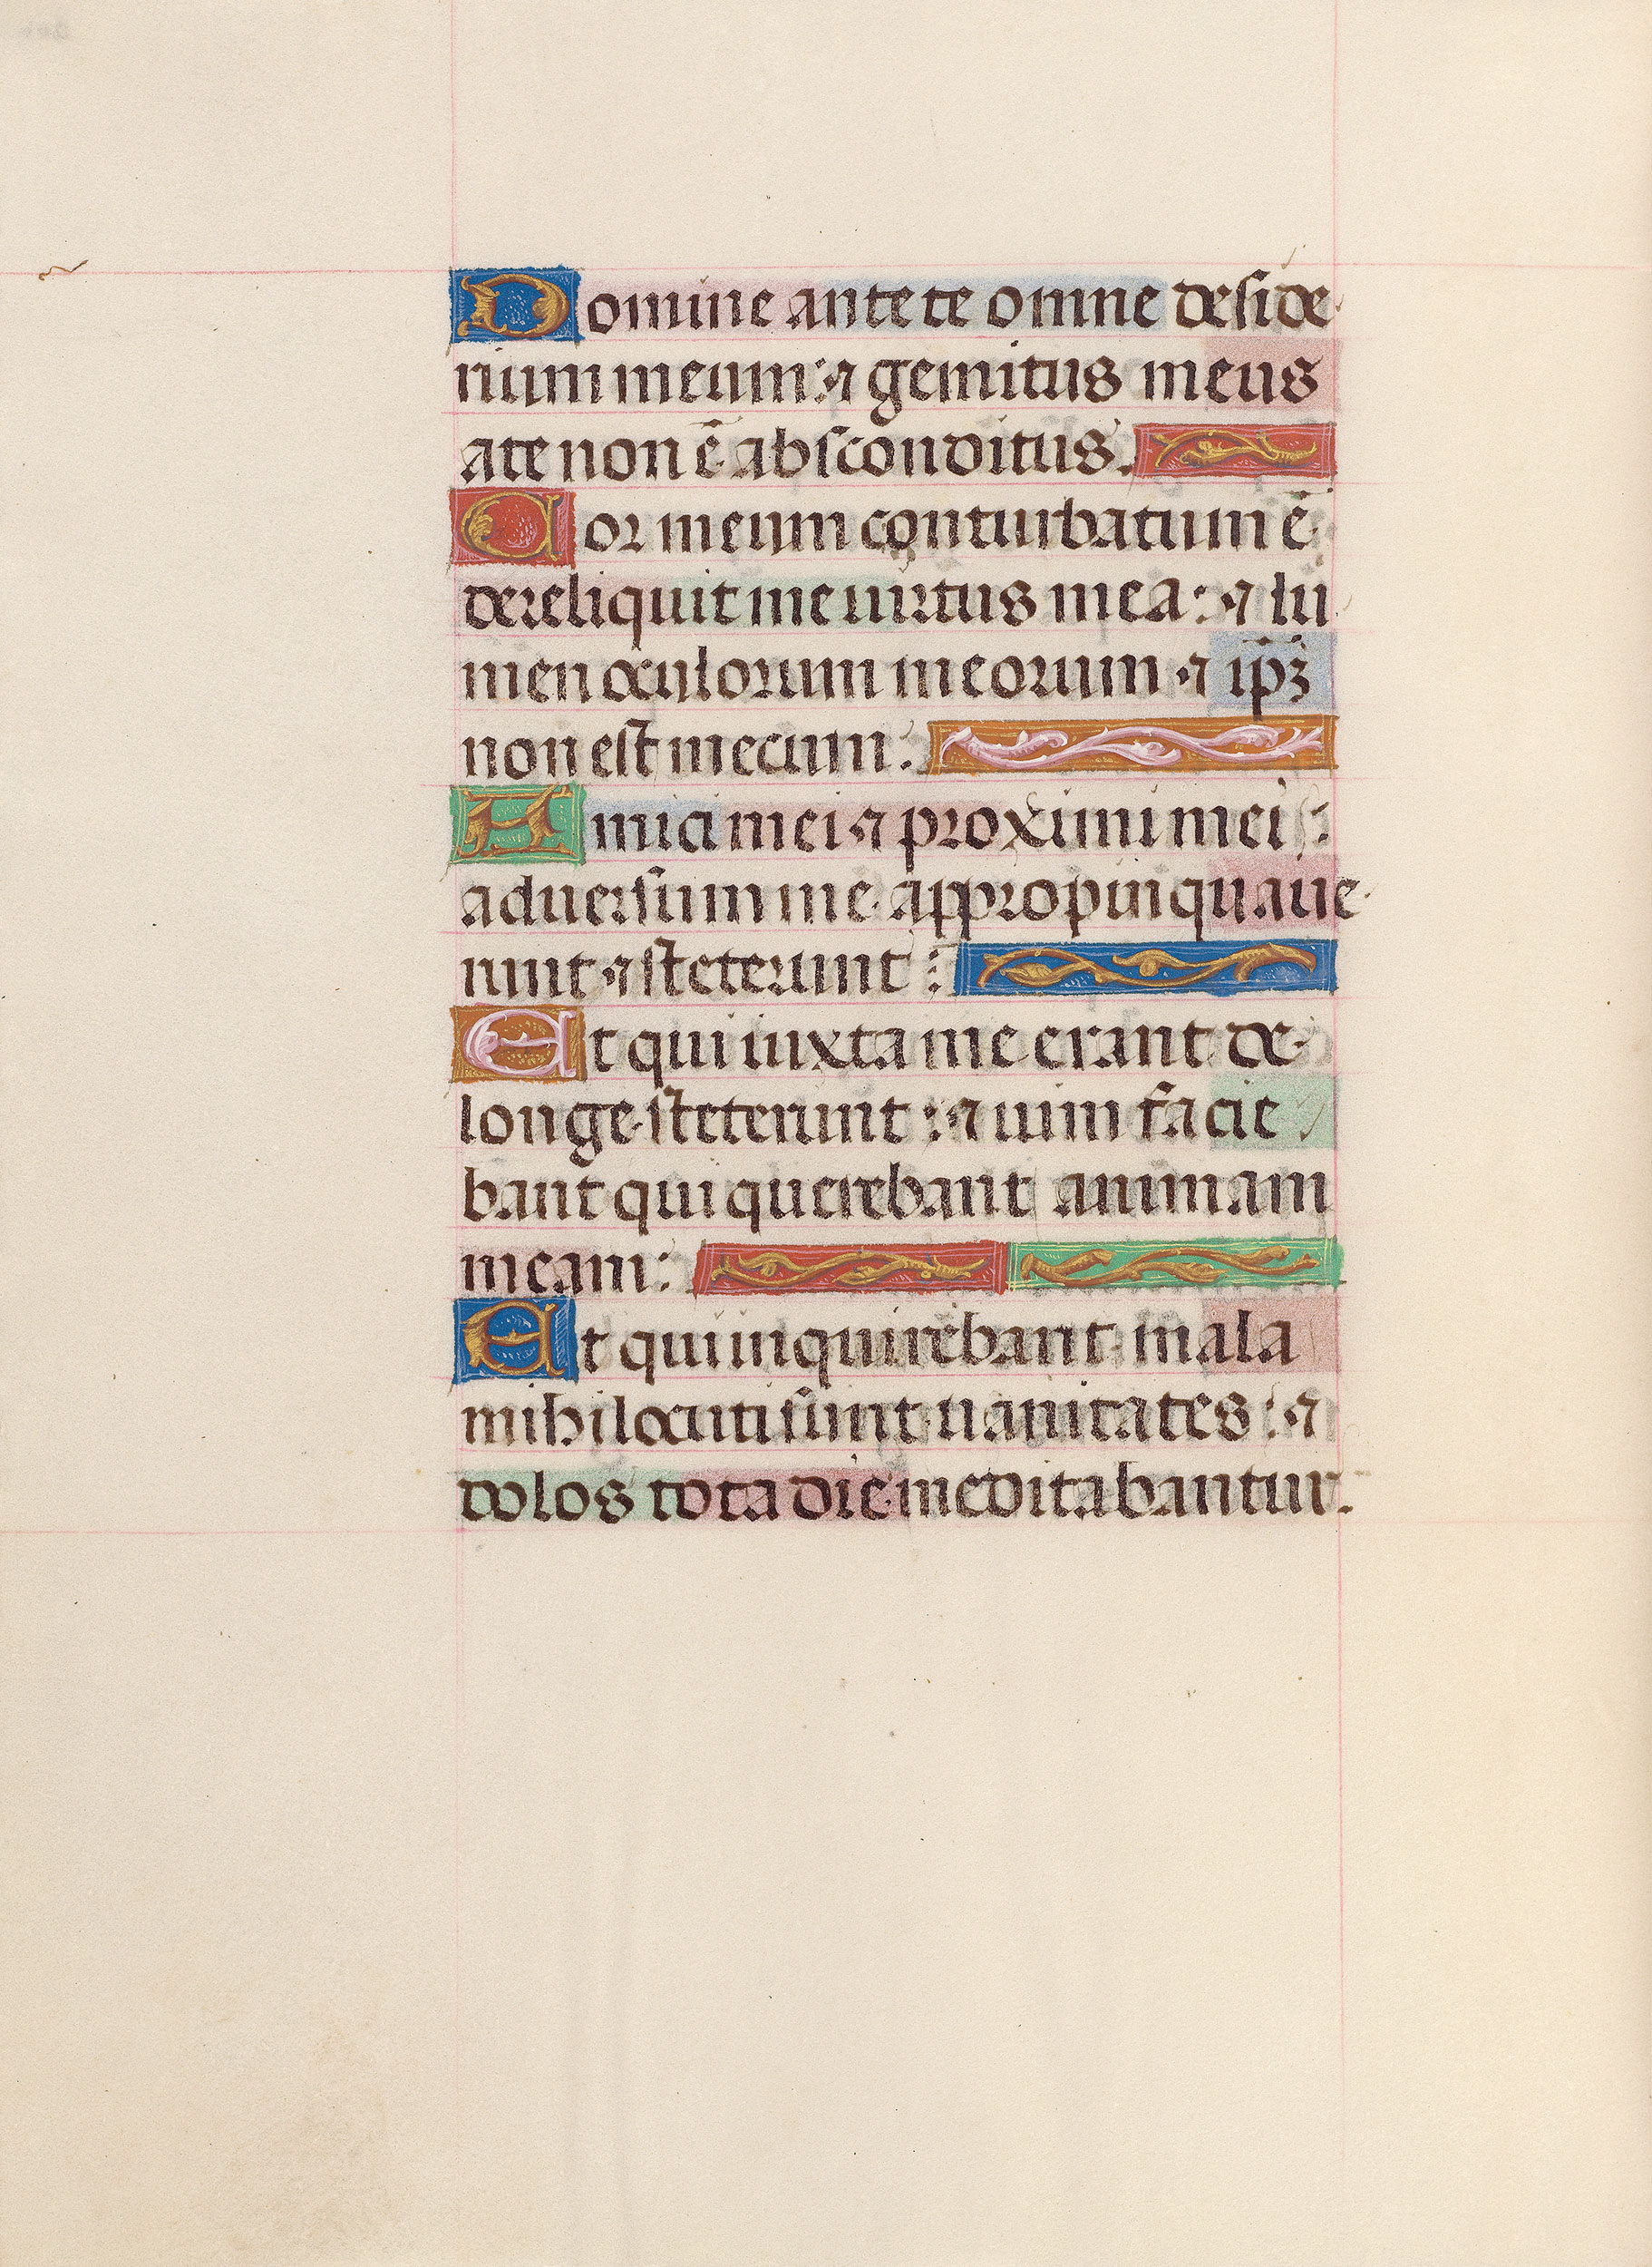 Domine ante te omne deside
rium meum: ⁊ gemitus meus
a te non ē absconditus.
Cor meum conturbatum ē
dereliquit me uirtus mea: ⁊ lu
men oculorum meorum ⁊ ip̄ꝫ
non est mecum:
Amici mei ⁊ proximi mei:
aduersum me appropinquaue
runt ⁊ steterunt:
Et qui iuxta me erant de
longe steterunt: ⁊ uim facie
bant qui querebant animam
meam:
Et qui inquirebant mala
mihi locuti sunt uanitates: ⁊
dolos tota die meditabantur.